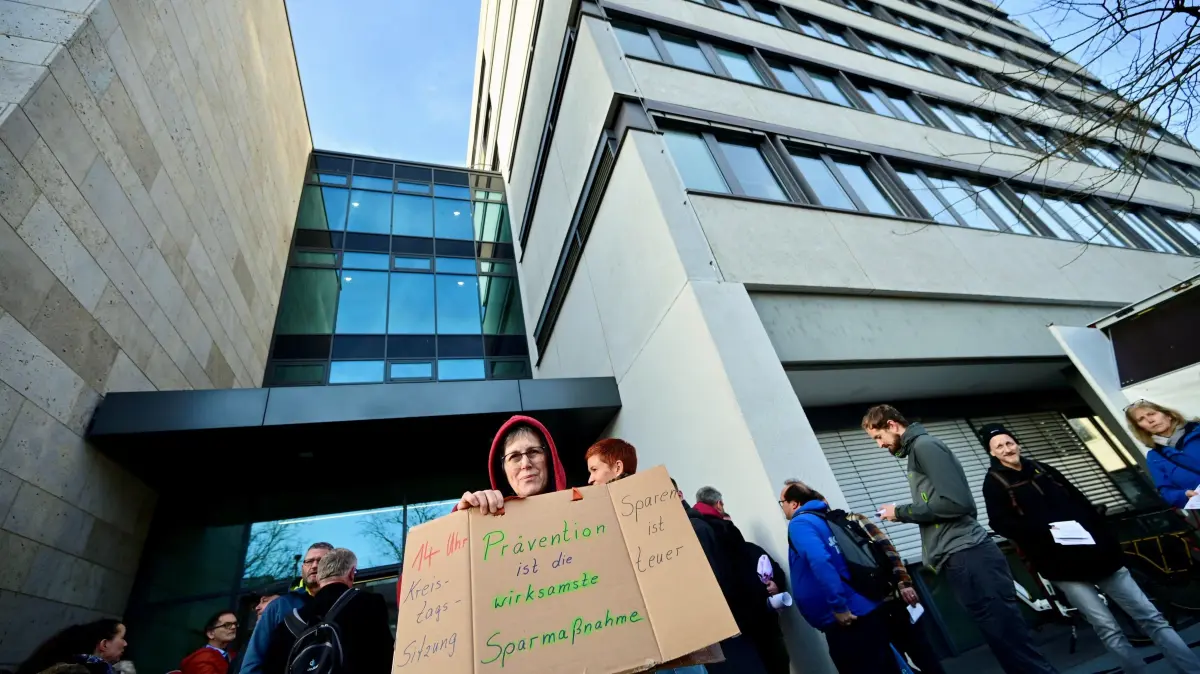 14 Uhr
Kreis-
tags-
Sitzung
Prävention
ist die
wirksamste
Sparmaßnahme
Sparen
ist
teuer